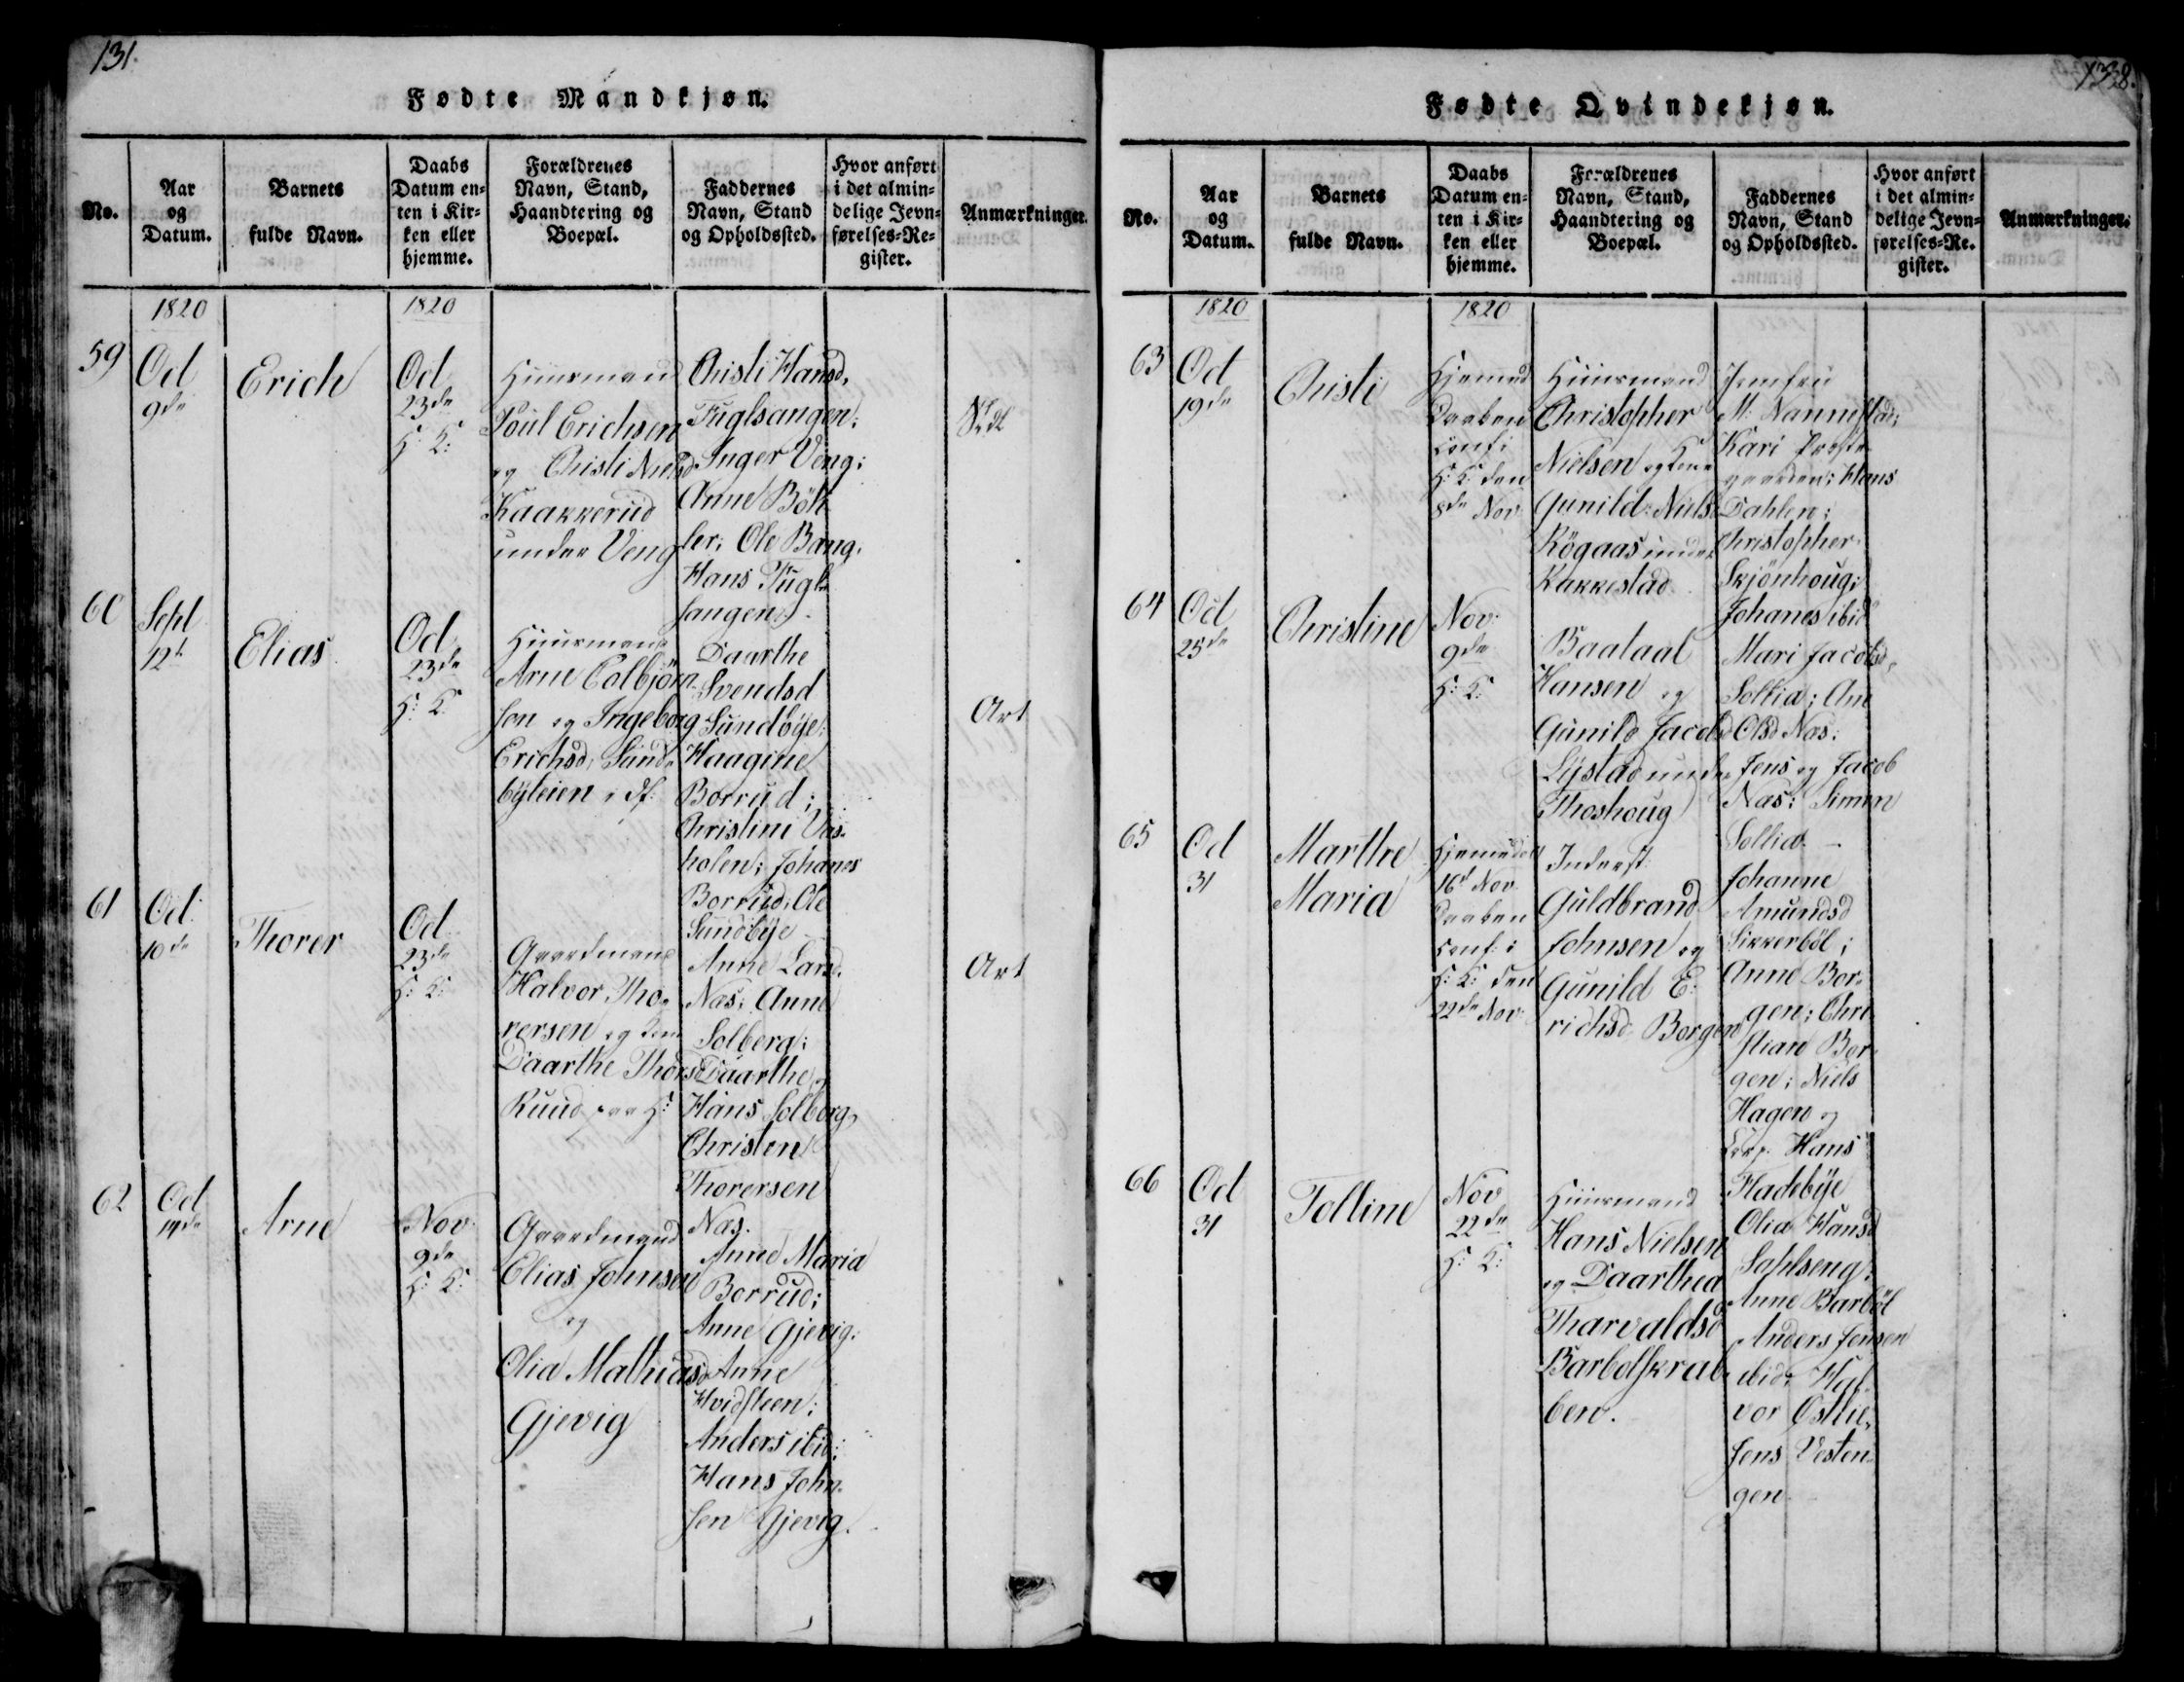 131.
Fødte Mandkjøn.
No.
Aar
og
Datum.
Barnets
fulde Navn.
Daabs
Datum en-
ten i Kir-
ken eller
hjemme.
Forældrenes
Navn, Stand,
Haandtering og
Boepæl.
Faddernes
Navn, Stand
og Opholdssted.
Hvor anført
i det almin-
delige Jevn-
førelses-Re-
gister.
Anmærkninger.
1820
1820
59
Oct
9de
Erich
Oct
23de
H: K:
Huusmand
Poul Erichsen
og Christi Nielsd
Kaakkerud
under Veng
Christi Hansd,
Fuglsangen;
Inger Veng;
Anne Böh
ler; Ole Bang,
Hans Fugl
sangen.
60
Sept
12t
Elias
Oct
23de
H: K:
Huusmand
Arne Colbjörn
sen og Ingeborg
Erichsd, Sund-
byeleien
Daarthe
Svendsd
Sundbye;
Haagine
Borrud;
Christine
holen; Johanes
Borrud, Ole
Sundbye
Art
61
Oct
10de
Thorer
Oct
23de
H: K:
Gaardmand
Halvor Tho-
rersen og Kone
Daarthe Thorsd
Ruud paa H:
Anne Land,
Næs; Anne
Solberg;
Daarthe og
Hans Solberg,
Christen
Thorersen
Næs.
Art
62
Oct
14de
Arne
Nov:
9de
H: K:
Gaardmand
Elias Johnsen
og
Olia Mathiasd
Gjevig
Anne Maria
Borrud;
Anne Gjevig;
Anne
Hvidsteen;
Anders ibid;
Hans John-
sen Gjevig.
138.
Fødte Qvindekjøn.
No.
Aar
og
Datum.
Barnets
fulde Navn.
Daabs
Datum en-
ten i Kir-
ken eller
hjemme.
Forældrenes
Navn, Stand,
Haandtering og
Boepæl.
Faddernes
Navn, Stand
og Opholdssted.
Hvor anført
i det almin-
delige Jevn-
førelses-Re-
gister.
Anmærkninger.
1820
1820
63
Oct
19de
Christi
Hjemmed
Daaben
conf: i
H: K: den
8de Nov
Huusmand
Christopher
Nielsen og Kone
Gunild Nielsd
Rögaas under
Kakkestad
Jomfru
M: Nannestad;
Kari Præste
gaarden; Hans
Dahlen;
Christopher
Skjönhoug;
Johanes ibid
64
Oct
25de
Christine
Nov:
9de
H: K:
Baataal
Hansen og
Gunild Jacobsd
Lystad under
Thoshoug
Mari Jacobsd,
Sollia; Ane
Olsd Næs;
Jens og Jacob
Næs; Simen
Sollia. —
65
Oct
31
Marthe
Maria
Hjemmedøbt
16d Nov.
Daaben
conf: i
H: K: den
22de Nov:
Inderst
Guldbrand
Johnsen og
Gunild E-
richsd Borgen
Johanne
Amundsd
Sikkerböl;
Anne Bor-
gen; Chri
stian Bor-
gen; Niels
Hagen og
Corp. Hans
Fladebye
66
Oct
31
Tolline
Nov
22de
H: K:
Huusmand
Hans Nielsen
og Daarthea
Tharvaldsd
Barbolskrab-
ben.
Olia Hansd
Sohlseng;
Anne Barböl
Anders Jensen
ibid; Hal
vor Östlie,
Jens Vesten-
gen